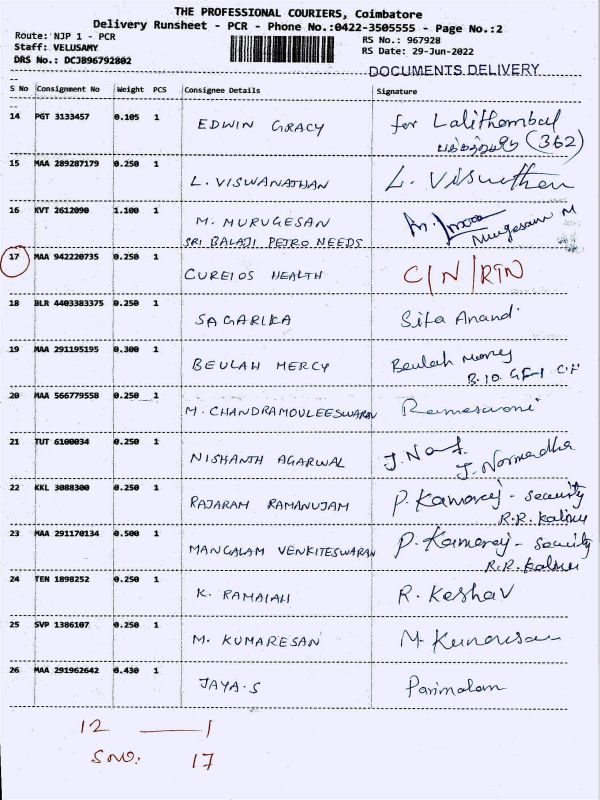 THE PROFESSIONAL COURIERS, Coimbatore
Delivery Runsheet - PCR - Phone No.:0422-3505555 - Page No.:2
Route: NJP 1 - PCR
RS No.: 967928
Staff: VELUSAMY
RS Date: 29-Jun-2022
DRS No.: DCJB96792802
DOCUMENTS DELIVERY
S No Consignment No Weight PCS Consignee Details Signature
14 PGT 3133457 0.105 1 EDWIN GRACY for Lalithambal
(362)
15 MAA 289287179 0.250 1 L. VISWANATHAN L. Viswanathan
16 KVT 2612090 1.100 1 M. MURUGESAN
SRI BALAJI PETRO NEEDS Murugesan M
17 MAA 942220735 0.250 1 CUREIOS HEALTH C/N/RTN
18 BLR 4403383375 0.250 1 SAGARIKA Sita Anand
19 MAA 291195195 0.300 1 BEULAH MERCY Beulah Mercy
B.10. GF-1
20 MAA 566779558 0.250 1 M. CHANDRAMOULEESWARAN Rameswari
21 TUT 6100034 0.250 1 NISHANTH AGARWAL J. Narmadha
22 KKL 3088300 0.250 1 RAJARAM RAMANUJAM P. Kamaraj - security
R.R.
23 MAA 291170134 0.500 1 MANGALAM VENKITESWARAN P. Kamaraj - security
R.R.
24 TEN 1898252 0.250 1 K. RAMAIAH R. Keshav
25 SVP 1386107 0.250 1 M. KUMARESAN M. Kumaresan
26 MAA 291962642 0.430 1 JAYA.S Parimalam
12 — 1
S NO: 17